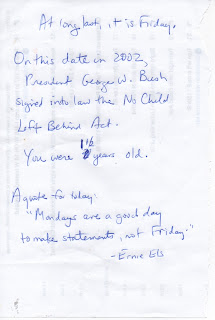 At long last, it is Friday.
On this date in 2002,
President George W. Bush
signed into law the No Child
Left Behind Act.
You were years old.
A quote for today:
"Mondays are a good day
to make statements, not Friday."
-Ernie Els